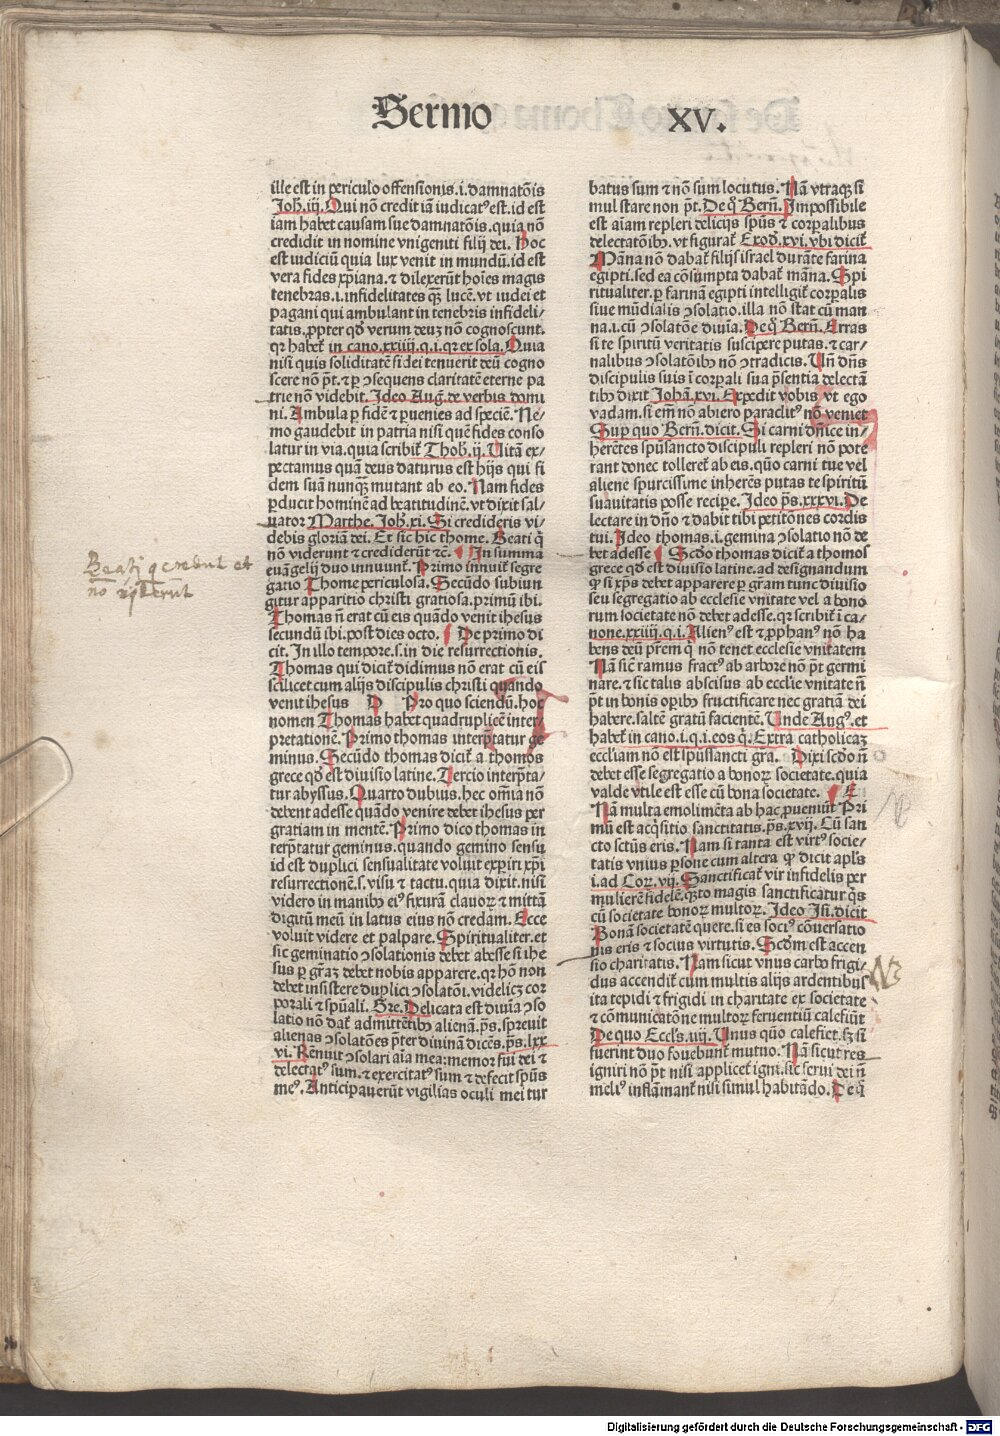 Sermo XV.
ille est in periculo offensionis.i.damnatōis
Joh̄.iij. Qui nō credit iā iudicatꝰ est.id est
iam habet causam sue damnatōis.quia nō
credidit in nomine vnigeniti filij dei. Hoc
est iudiciū quia lux venit in mundū.id est
vera fides xp̄iana.⁊ dilexerūt hoīes magis
tenebras.i.infidelitates qȝ lucē.vt iudei et
pagani qui ambulant in tenebris infideli-
tatis.ꝓpter qd̄ verum deuȝ nō cognoscunt.
qr habet̄ in cano.xxiiij.q.i.qr ex sola. Quia
nisi quis soliditatē fidei tenuerit deū cogno
scere nō pt̄.⁊ ꝑ ↄsequens claritatē eterne pa
trie nō videbit. Ideo Aug.de verbis domi
ni. Ambula ꝑ fidē ⁊ ꝑuenies ad speciē. Ne/
mo gaudebit in patria nisi quē fides conso
latur in via.quia scribit̄ Thob̄.ij. Uitā ex/
pectamus quā deus daturus est hijs qui fi
dem suā nunqȝ mutant ab eo. Nam fides
ꝑducit hominē ad beatitudinē.vt dixit sal/
uator Marthe. Joh̄.xi. Si credideris vi/
debis gloriā dei. Et sic hic thome. Beati q̄
nō viderunt ⁊ crediderūt ⁊c̄. In summa
euāgelij duo innuunt̄. Primo innuit̄ segre
gatio Thome periculosa. Secūdo subiun
gitur apparitio christi gratiosa.primū ibi.
Thomas n̄ erat cū eis quādo venit ihesus
secundū ibi.post dies octo. De primo di
cit. In illo tempore.s.in die resurrectionis.
Thomas qui dicit̄ didimus nō erat cū eis
scilicet cum alijs discipulis christi quando
venit ihesus D Pro quo sciendū.hoc
nomen Thomas habet quadruplicē inter/
pretationē. Primo thomas interp̄tatur ge
minus. Secūdo thomas dicit̄ a thomos
grece qd̄ est diuisio latine. Tercio interp̄ta/
tur abyssus. Quarto dubius.hec om̄ia nō
debent adesse quādo venire debet ihesus per
gratiam in mentē. Primo dico thomas in
terp̄tatur geminus.quando gemino sensu
id est duplici sensualitate voluit exꝑiri xp̄i
resurrectionē.s.visu ⁊ tactu.quia dixit.nisi
videro in manibꝰ eiꝰ fixurā clauoꝝ ⁊ mittā
digitū meū in latus eius nō credam. Ecce
voluit videre et palpare. Spiritualiter.et
sic geminatio ↄsolationis debet abesse si ihe
sus ꝑ grāȝ debet nobis apparere.qr hō non
debet insistere duplici ↄsolatōi.videlicȝ cor
porali ⁊ spūali. Gre. Delicata est diuīa ↄso
latio nō dat̄ admittētibꝰ alienā.ps̄.spreuit
alienas ↄsolatōes p̄ter diuinā dicēs.ps̄.lxx
vi. Renuit ↄsolari aīa mea:memor fui dei ⁊
delectatꝰ sum.⁊ exercitatꝰ sum ⁊ defecit spūs
meꝰ. Anticipauerūt vigilias oculi mei tur
Beati q credūt et
no viderūt
batus sum ⁊ nō sum locutus. Nā vtraqȝ si
mul stare non pt̄. De q̄ Bern̄. Impossibile
est aīam repleri delicijs spūs ⁊ corpalibus
delectatōibꝰ.vt figurat̄ Exod̄.xvi.vbi dicit̄
Māna nō dabat̄ filijs israel durāte farina
egipti.sed ea cōsumpta dabat̄ māna. Spi
ritualiter.ꝑ farinā egipti intelligit̄ corꝑalis
siue mūdialis ↄsolatio.illa nō stat cū man
na.i.cū ↄsolatōe diuīa. De q̄ Bern̄. Erras
si te spiritū veritatis suscipere putas.⁊ car/
nalibus ↄsolatōibꝰ nō ↄtradicis. Un̄ dn̄s
discipulis suis ī corꝑali sua p̄sentia delectā
tibꝰ dixit Johā.xvi. Expedit vobis vt ego
vadam.si em̄ nō abiero paraclitꝰ nō veniet
Suꝑ quo Bern̄.dicit. Si carni dn̄ice in/
herētes spūsancto discipuli repleri nō pote
rant donec tolleret̄ ab eis.quō carni tue vel
aliene spurcissime inherēs putas te spiritū
suauitatis posse recipe. Ideo ps̄.xxxvi. De
lectare in dn̄o ⁊ dabit tibi petitōnes cordis
tui. Ideo thomas.i.gemina ↄsolatio nō de
bet adesse Scd̄o thomas dicit̄ a thomos
grece qd̄ est diuisio latine.ad designandum
ꝙ si xp̄s debet apparere ꝑ grām tunc diuisio
seu segregatio ab ecclesie vnitate vel a bono
rum societate nō debet adesse.qr scribit̄ ī ca/
none.xxiiij.q.i. Alienꝰ est ⁊ ꝓphanꝰ nō ha
bens deū pr̄em q̄ nō tenet ecclesie vnitatem
Nā sic̄ ramus fractꝰ ab arbore nō pt̄ germi
nare.⁊ sic talis abscisus ab eccl̄ie vnitate n̄
pt̄ in bonis opibꝰ fructificare nec gratiā dei
habere.saltē gratū facientē. Unde Augꝰ.et
habet̄ in cano.i.q.i.eos q̄. Extra catholicaȝ
eccliam nō est spūssancti grā. Dixi scd̄o n̄
debet esse segregatio a bonoꝝ societate.quia
valde vtile est esse cū bona societate. E
Nā multa emolimēta ab hac ꝓueniūt Pri
mū est acq̄sitio sanctitatis.ps̄.xvij. Cū san
cto sctūs eris. Nam si tanta est virtꝰ socie/
tatis vnius ꝑsone cum altera ꝙ dicit apl̄s
i.ad Cor.vij. Sanctificat̄ vir infidelis per
mulierē fidelē.qȝto magis sanctificatur q̄s
cū societate bonoꝝ multoꝝ. Ideo Isi.dicit
Bonā societatē quere.si es sociꝰ cōuersatio
nis eris ⁊ socius virtutis. Scd̄m est accen
sio charitatis. Nam sicut vnus carbo frigi/
dus accendit̄ cum multis alijs ardentibus
ita tepidi ⁊ frigidi in charitate ex societate
⁊ cōmunicatōne multoꝝ feruentiū calefiūt
De quo Eccl̄s.iiij. Unus quō calefiet.sȝ si
fuerint duo fouebunt̄ mutuo. Nā sicut res
igniri nō pt̄ nisi applicet̄ igni.sic serui dei n̄
meliꝰ inflāmant̄ nisi simul habitādo. De q̄
Digitalisierung gefördert durch die Deutsche Forschungsgemeinschaft - DFG